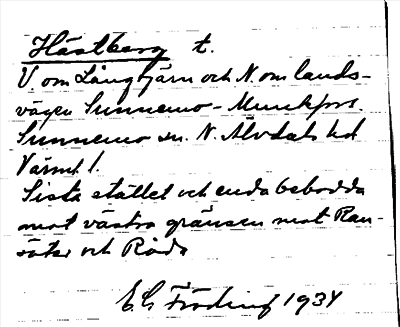 Hästberg t.
V. om Långtjärn och N. om lands-
vägen Sunnemo - Munkfors
Sunnemo sn. N. Älvdals hd
Värml.
Sista stället och enda bebodda
mot västra gränsen mot Ran-
säter och Råda
E G Fröding 1934